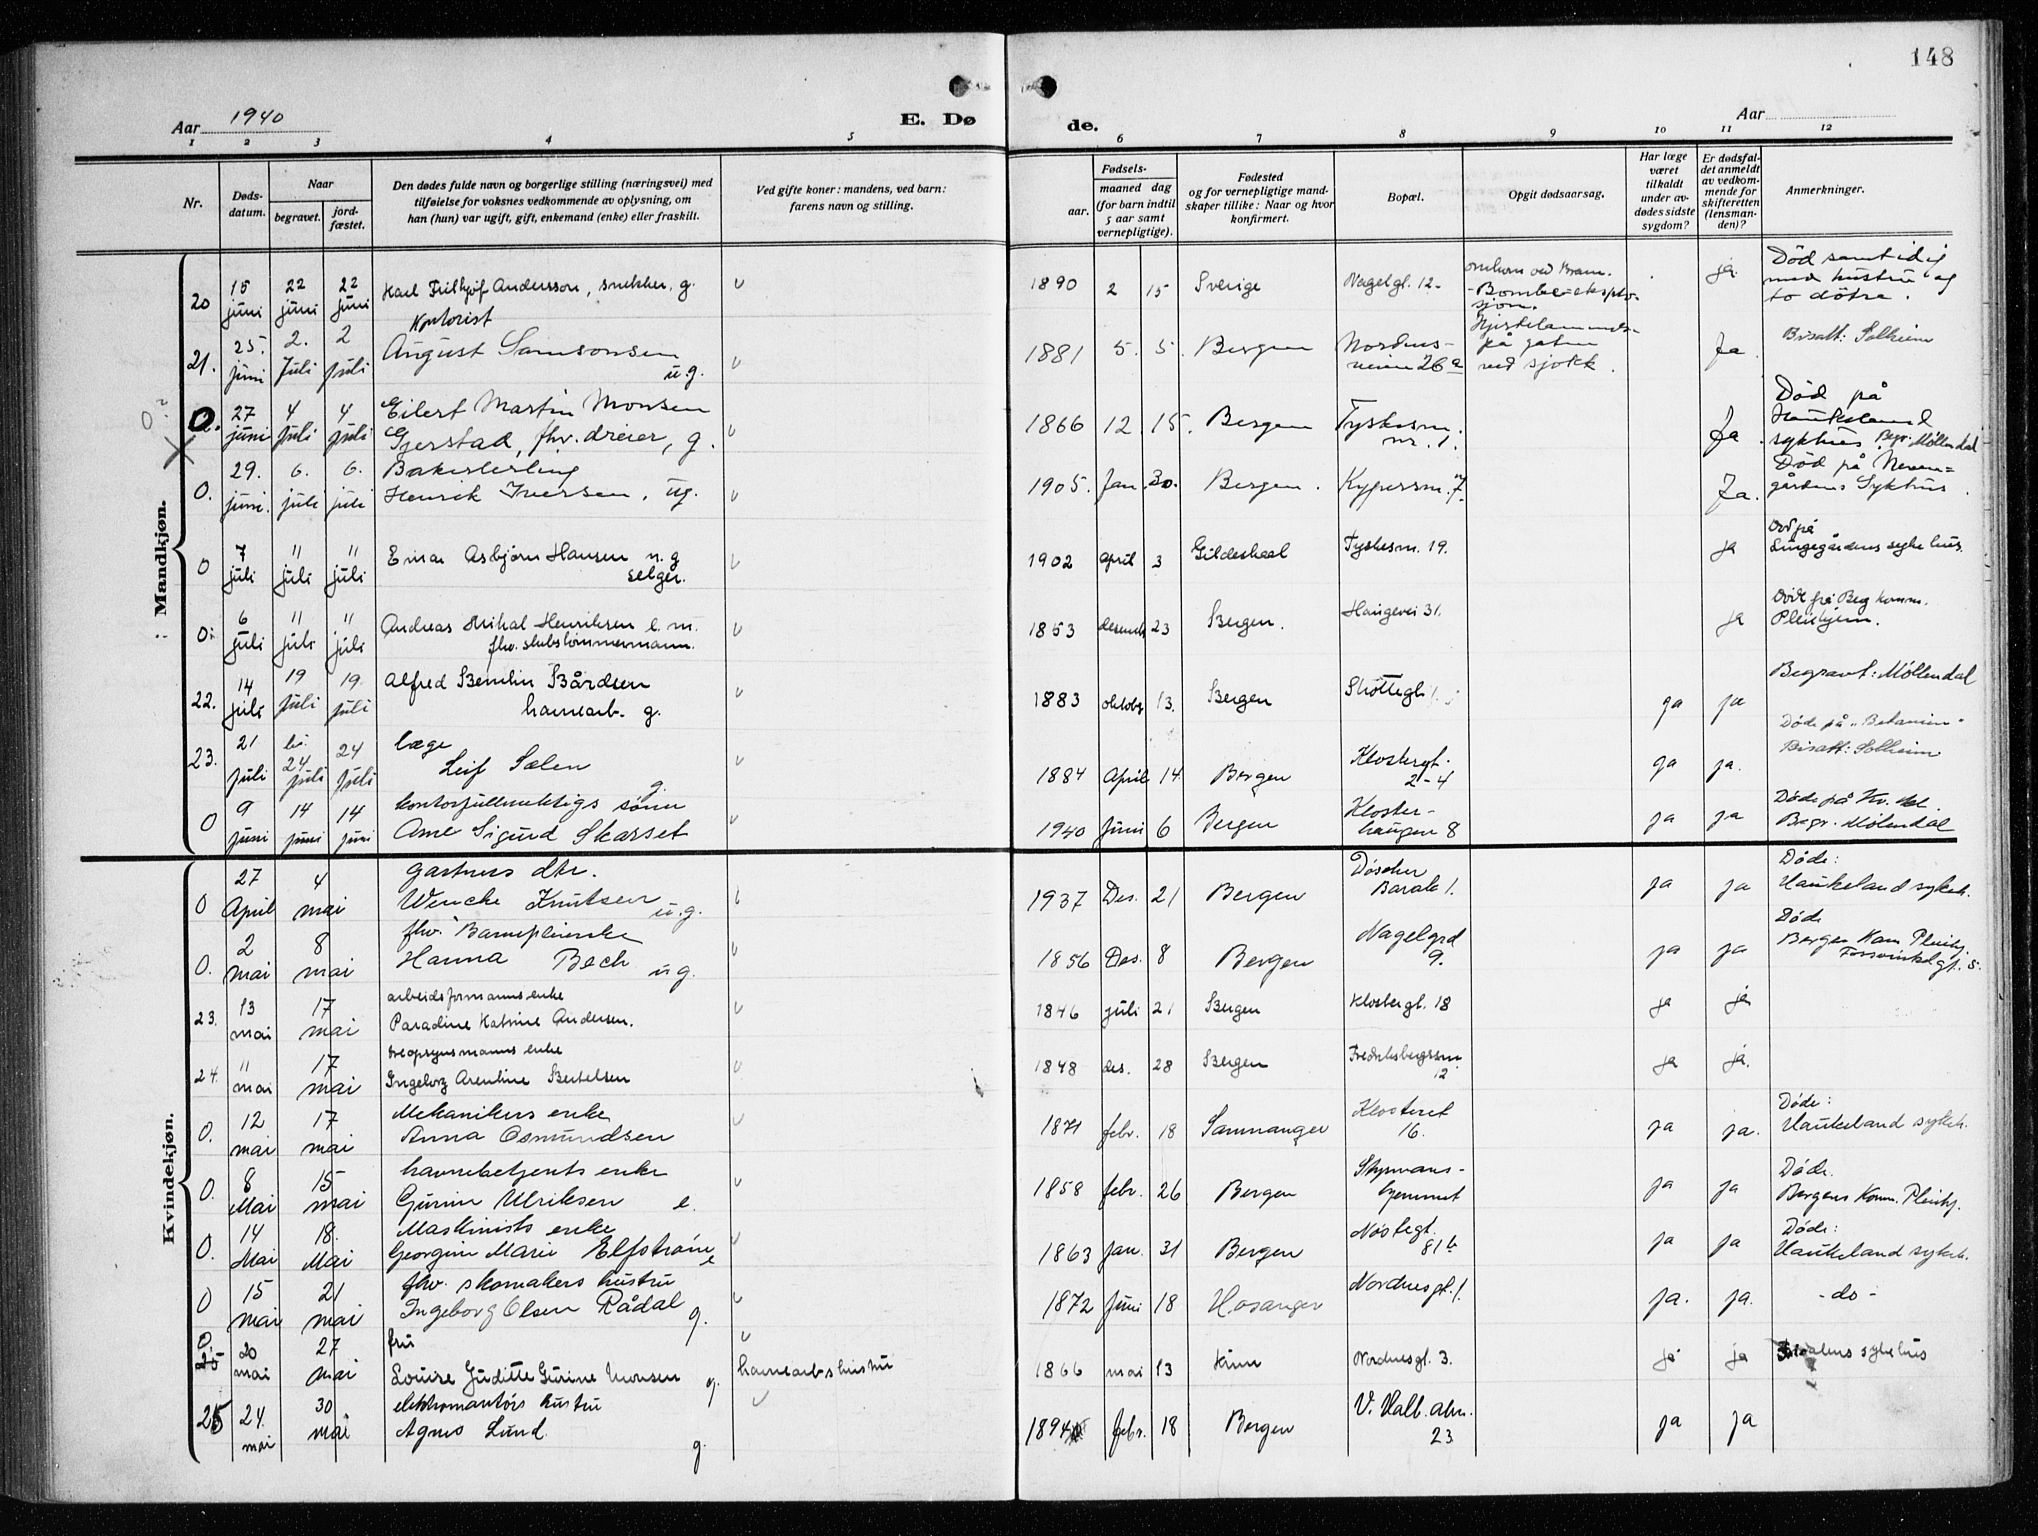 148
Aar 1940
E. Dø de.
Aar
1 2 3 4 5 6 7 8 9 10 11 12
Nr.
Døds-datum.
Naar
begravet.
jord-fæstet.
Den dødes fulde navn og borgerlige stilling (næringsvei) med
tilføielse for voksnes vedkommende av oplysning, om
han (hun) var ugift, gift, enkemand (enke) eller fraskilt.
Ved gifte koner: mandens, ved barn:
farens navn og stilling.
Fødsels-
aar.
maaned dag
(for barn indtil
5 aar samt
vernepligtige).
Fødested
og for vernepligtige mand-
skaper tillike: Naar og hvor
konfirmert.
Bopæl.
Opgit dødsaarsag.
Har læge
været
tilkaldt
under av-
dødes sidste
sygdom?
Er dødsfal-
det anmeldt
av vedkom-
mende for
skifteretten
(lensman-
den)?
Anmerkninger.
Mandkjøn.
20 15 juni 22 juni 22 juni Karl Fridtjof Andersson, snekker, g. 1890 2 15 Sverige Nagelgt. 12 omkom ved Bombe-eksplo-sjon. ja Død samtidig med hustru og to døtre.
21. 25. juni 2. Juli 2 juli Kontorist August Samsonsen u.g. 1881 5. 5. Bergen Nordnes-veien 26a Hjertelammelse på gaten ved sjokk. Ja Bisatt: Solheim
0. 27 juni 4 Juli 4 juli Eilert Martin Monsen Gjerstad, fhv. dreier, g. 1866 12. 15. Bergen Tyskesm. nr. 1. Ja. Død på Haukeland sykhus Begr. Møllendal
0. 29. juni. 6. juli 6. juli Bakerlerling Henrik Iversen, ug. 1905. Jan. 30. Bergen. Kypersm. 7. Ja. Død på Nevengårdens Sykhus.
0 7 juli 11 juli 11 juli Einar Asbjørn Hansen u.g selger. 1902 april 3 Gildeskaal Tyskesm. 19. ja Død på Lungegårdens sykehus.
0. 6 juli 11 juli 11 juli Andreas Mikal Henriksen e.m. fhv. skibstømmermann. 1853 desemb. 23 Bergen. Haugevei 31. ja Død på Berg. komm. Pleihjem.
22. 14 juli 19 juli 19. juli Alfred Bemlin Bårdsen havnearb. g. 1883 oktober 13. Bergen Skottegt. ja ja Begravt: Møllendal
23. 21 juli bi. 24 juli 24 juli læge Leif Sælen g. 1884 April 14. Bergen Klostergt. 2-4 ja ja. Døde på "Betanien" Bisatt: Solheim
0 9 juni 14 juni 14 juni kontorfullmektigs sønn Arne Sigurd Skarset 1940 Juni 6 Bergen Kloster-haugen 8 ja ja Døde på Kv. kl. Begr. Møllendal
Kvindekjøn.
0 27 April 4 mai gartners dtr. Wenche Knutsen u.g. 1937 Des. 21 Bergen Barak 1. ja ja Døde: Haukeland sykeh.
0. 2 mai 8 mai fhv. Barnepleierske Hanna Bech ug. 1856 Des. 8 Bergen Nagelgrd 9. ja ja Døde Bergen Kom. Pleihj. gt. 5.
23. 13 mai 17 mai arbeidsformanns enke Paradine Katrine Andersen. 1846 juli 21 Bergen Klostergt. 18 ja ja
24. 11 mai 17 mai treopsynsmanns enke Ingeborg Arentine Bertelsen 1848 des. 28 Bergen Fredriksbergssm. 12 ja ja.
0. 12 mai 17 mai Mekanikers enke Anna Osmundsen 1871 febr. 18 Samnanger Klosteret 16. ja ja. Døde: Haukeland sykeh.
0. 8 Mai 15 mai havnebetjents enke Gurine Ulriksen e. 1858 febr. 26 Bergen Styrmans-hjemmet ja ja Døde. Bergens Kom. Pleihj.
0. 14 Mai 18. Mai Maskinists enke Georgine Marie Elfstrøm e 1863 Jan. 31 Bergen Nøstegt. 81b ja ja Døde: Haukeland sykeh.
0 15 mai 21 mai fhv. skomakers hustru Ingeborg Olsen Rådal g. 1872 Juni 18 Hosanger Nordnesgt. 1. ja. ja. - do -
0. 25 20 mai 27 mai fru Louise Juditte Gurine Monsen g. havnearb.s hustru 1866 mai 13 Kinn Nordnesgt. 3. ja ja sykehus
25 24. mai 30 mai elektromontørs hustru Agnes Lund. g. 1894 febr. 18 Bergen V. Halb. alm. 23 ja ja